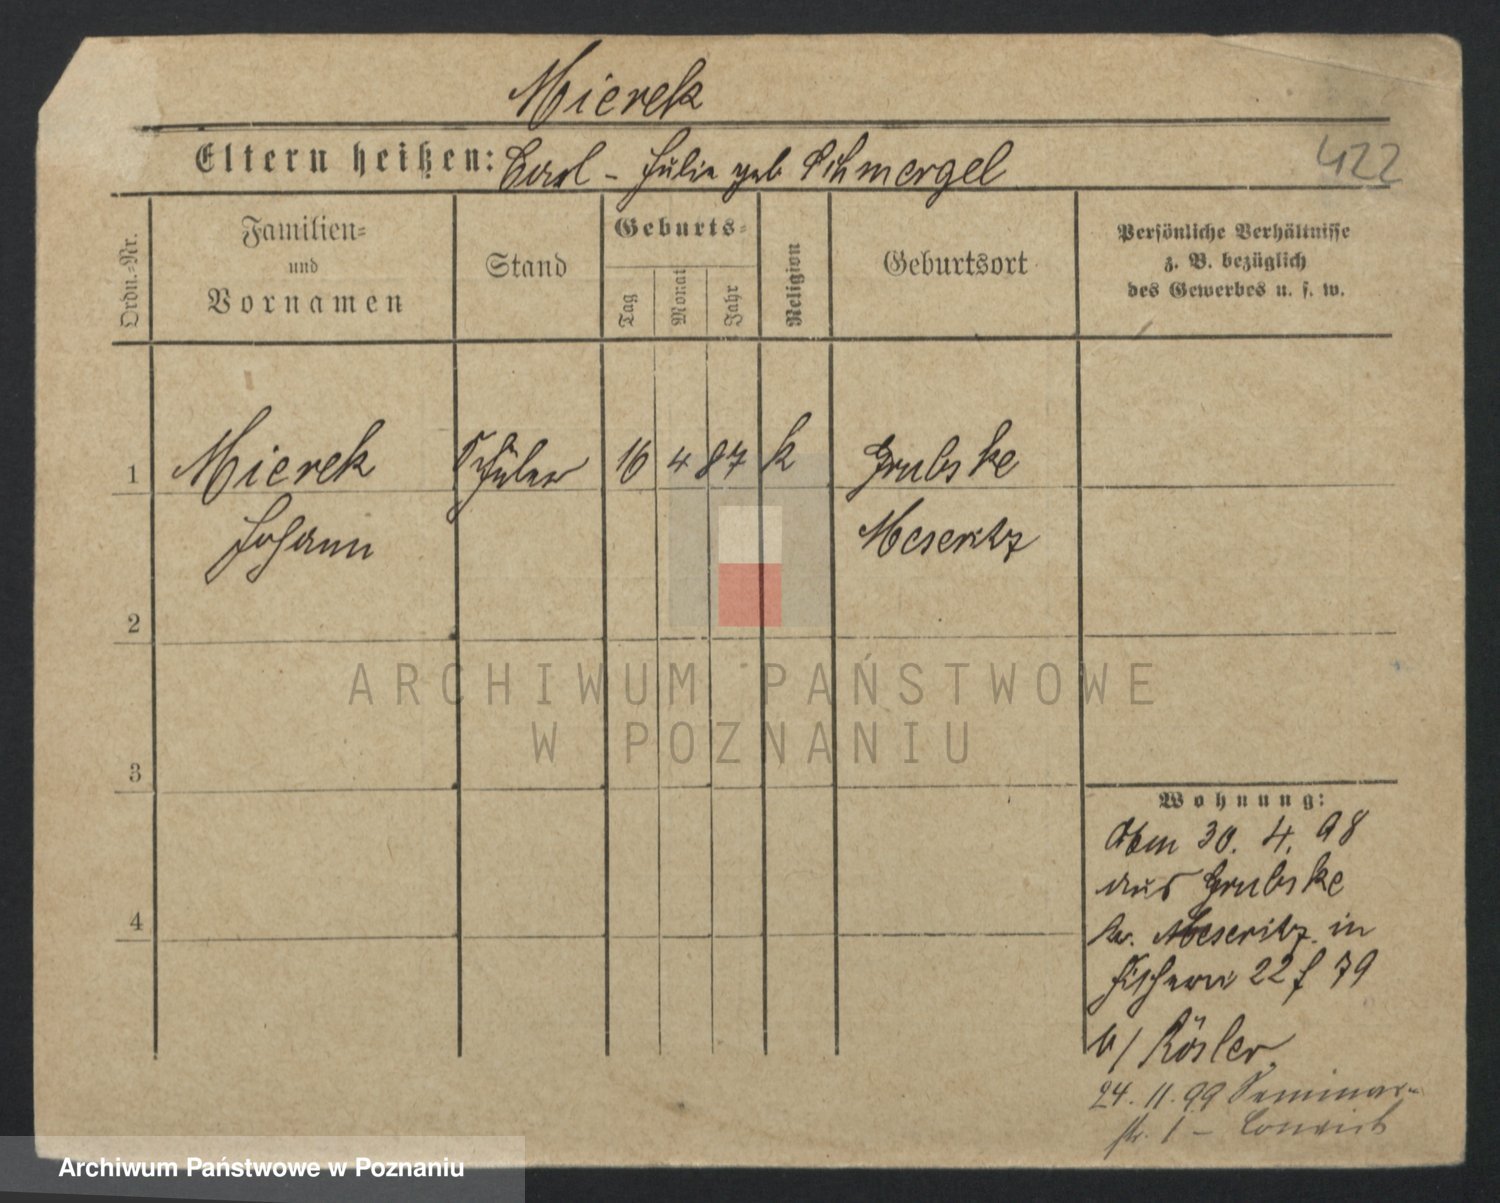 Mierek
Eltern heißen: Carl - Julie geb Schmergel
422
Ordn.-Nr.
Familien- und Vornamen
Stand
Geburts-
Tag
Monat
Jahr
Religion
Geburtsort
Persönliche Verhältnisse
z. B. bezüglich
des Gewerbes u. s. w.
1 Mierek Schüler 16 4 87 k Grubske
Johann Meseritz
2
3
4
Wohnung:
30. 4. 98
aus Grubske
Kr. Meseritz in
Fischerei 22 f 79
b/ Rösler.
24. 11. 99 Seminar-
str. 1 - Convict
ARCHIWUM PAŃSTWOWE
W POZNANIU
Archiwum Państwowe w Poznaniu